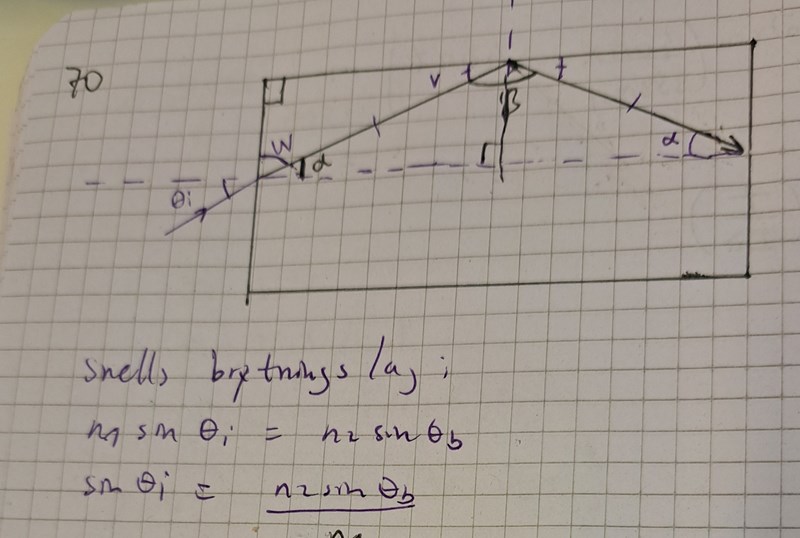 70
v
β
W
α
α
θi
snells brytnings lag :
n1 sin θi = n2 sin θb
sin θi = n2 sin θb
n1